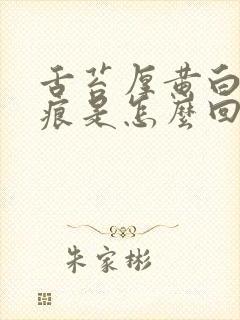 舌苔厚黄白
痕是怎麼回
朱家彬